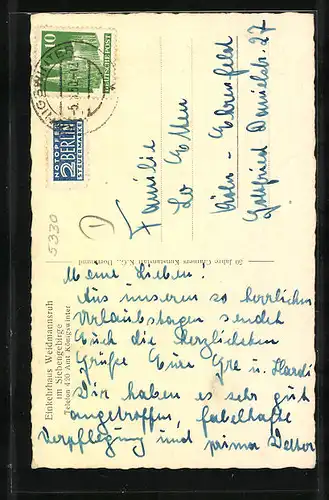 10
DEUTSCHE POST
NOTOPFER
2 BERLIN
STEUERMARKE
5330
Familie
Köln - Ehrenfeld
Gottfried Danielstr. 27
50 Jahre Cramers Kunstanstalt K.G., Dortmund
Einkehrhaus Weidmannsruh
im Siebengebirge
Telefon 420 Amt Königswinter
Meine Lieben!
Aus unseren so herrlichen
Urlaubstagen sendet
Euch die herzlichsten
Grüße Eure u. Hardi
Wir haben es sehr gut
angetroffen, fabelhafte
Verpflegung und prima Wetter